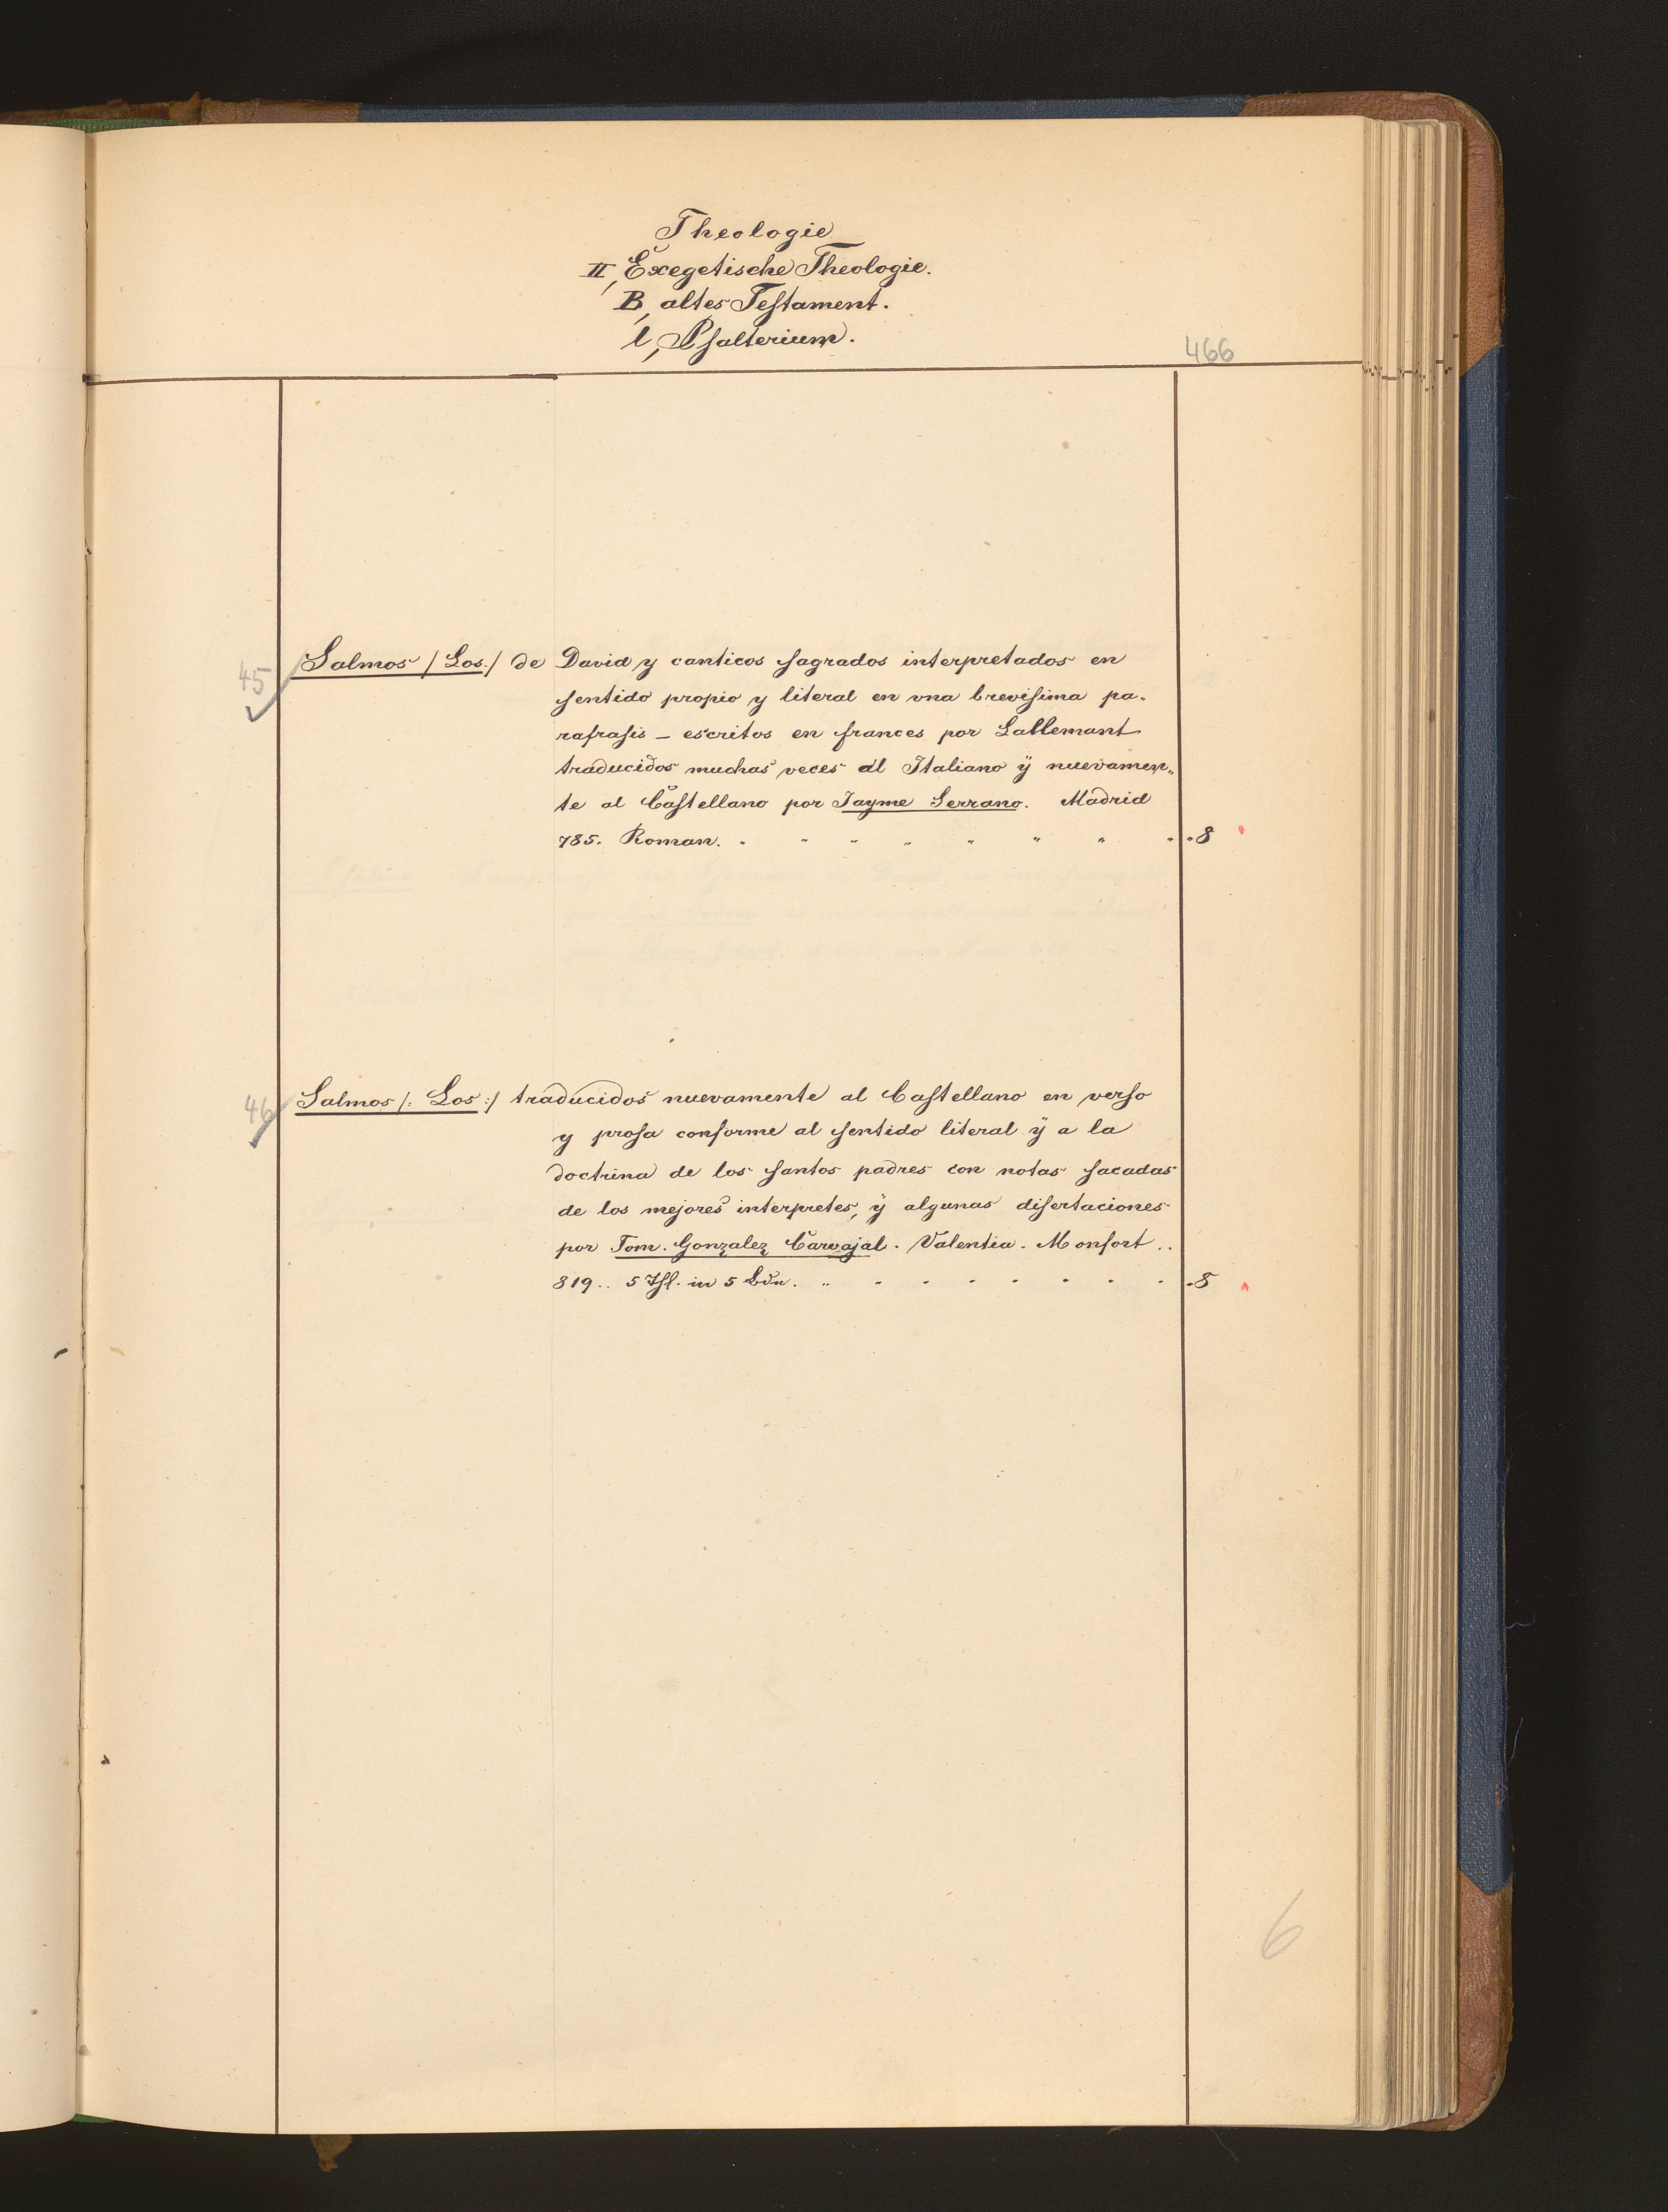 Theologie
II, Exegetische Theologie.
B, altes Testament.
l, Psalterium.
466
45
Salmos /Los./ de David y canticos sagrados interpretados en
sentido propio y literal en vna brevisima pa-
rafrasis – escritos en frances por Lallemant
traducidos muchas veces al Italiano ÿ nuevamen-
te al Castellano por Jayme Serrano. Madrid
785. Roman. 8
46
Salmos /: Los :/ traducidos nuevamente al Castellano en verso
y prosa conforme al sentido literal ÿ a la
doctrina de los santos padres con notas sacadas
de los mejores interpretes, ÿ algunas disertaciones
por Tom. Gonzalez Carvajal. Valentia. Monfort..
819.. 5 Thl. in 5 Bdn. 8
6